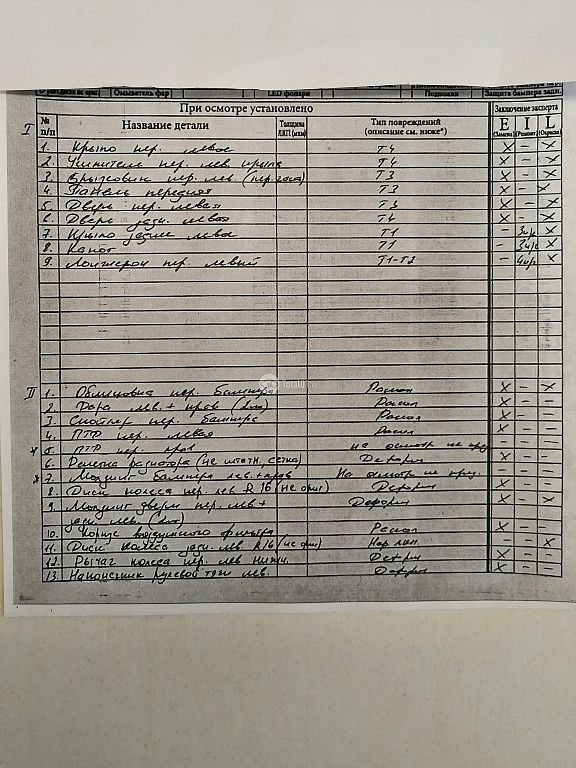 Омыватель фар LED фонари Подножки Защита бампера задн.
При осмотре установлено Заключение эксперта
I № п/п Название детали Толщина ЛКП (мкм) Тип повреждений (описание см. ниже*) E (Замена) I (Ремонт) L (Окраска)
1. Крыло пер. левое T4 X – X
2. Усилитель пер. лев. крыла T4 X – X
3. Брызговик пер. лев. T3 X – X
4. Панель передняя T3 X – X
5. Дверь пер. левая T3 X – X
6. Дверь задн. левая X – X
7. Крыло заднее левое T1 – 3н/ч X
8. Капот T1 – 3н/ч X
9. Лонжерон пер. левый T1-T2 – 4н/ч X
II 1. Облицовка пер. бампера Раскол X – X
2. Фара лев. + прав. Раскол X – –
3. Спойлер пер. бампера Раскол X – –
4. ПТФ пер. левая Раскол X – –
5. ПТФ пер. прав. на осмотр не – – –
6. Решетка радиатора (не штатн, сетка) Деформ X – –
7. Молдинг бампера лев.+прав На осмотр не – – –
8. Диск колеса пер. лев R16 (не ориг) Деформ X – –
9. Молдинг двери пер. лев + Деформ X – X
задн. лев.
10. Корпус воздушного фильтра Раскол X – –
11. Диск колеса задн. лев. R16 (не ориг) – – X
12. Рычаг колеса пер. лев нижн. Деформ X – –
13. Наконечник рулевой тяги лев. Деформ X – –